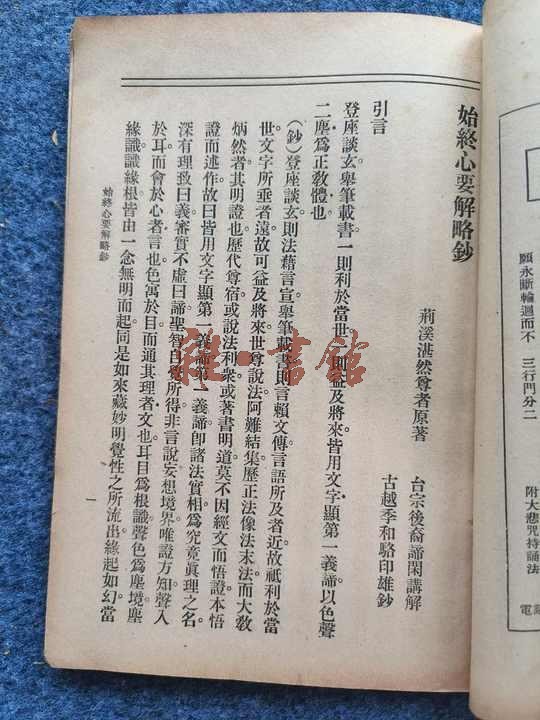 始終心要解略鈔
荊溪湛然尊者原著
台宗後裔諦閑講解
古越季和駱印雄鈔
引言
登座談玄舉筆載書一則利於當世一則益及將來皆用文字顯第一義諦以色聲
二塵爲正教體也
(鈔)登座談玄則法藉言宣舉筆載書則言賴文傳言語所及者近故祇利於當
世文字所垂者遠故可益及將來世尊說法阿難結集歷正法像法末法而大教
炳然者其明證也歷代尊宿或說法利衆或著書明道莫不因經文而悟證本悟
證而述作故曰皆用文字顯第一義諦第一義諦卽諸法實相爲究竟眞理之名
深有理致曰義審實不虛曰諦聖智自覺所得非言說妄想境界唯證方知聲入
於耳而會於心者言也色寓於目而通其理者文也耳目爲根識聲色爲塵境塵
緣識識緣根皆由一念無明而起同是如來藏妙明覺性之所流出緣起如幻當
始終心要解略鈔
一
願永斷輪迴而不
三行門分二
附大悲咒持誦法
雜·書館